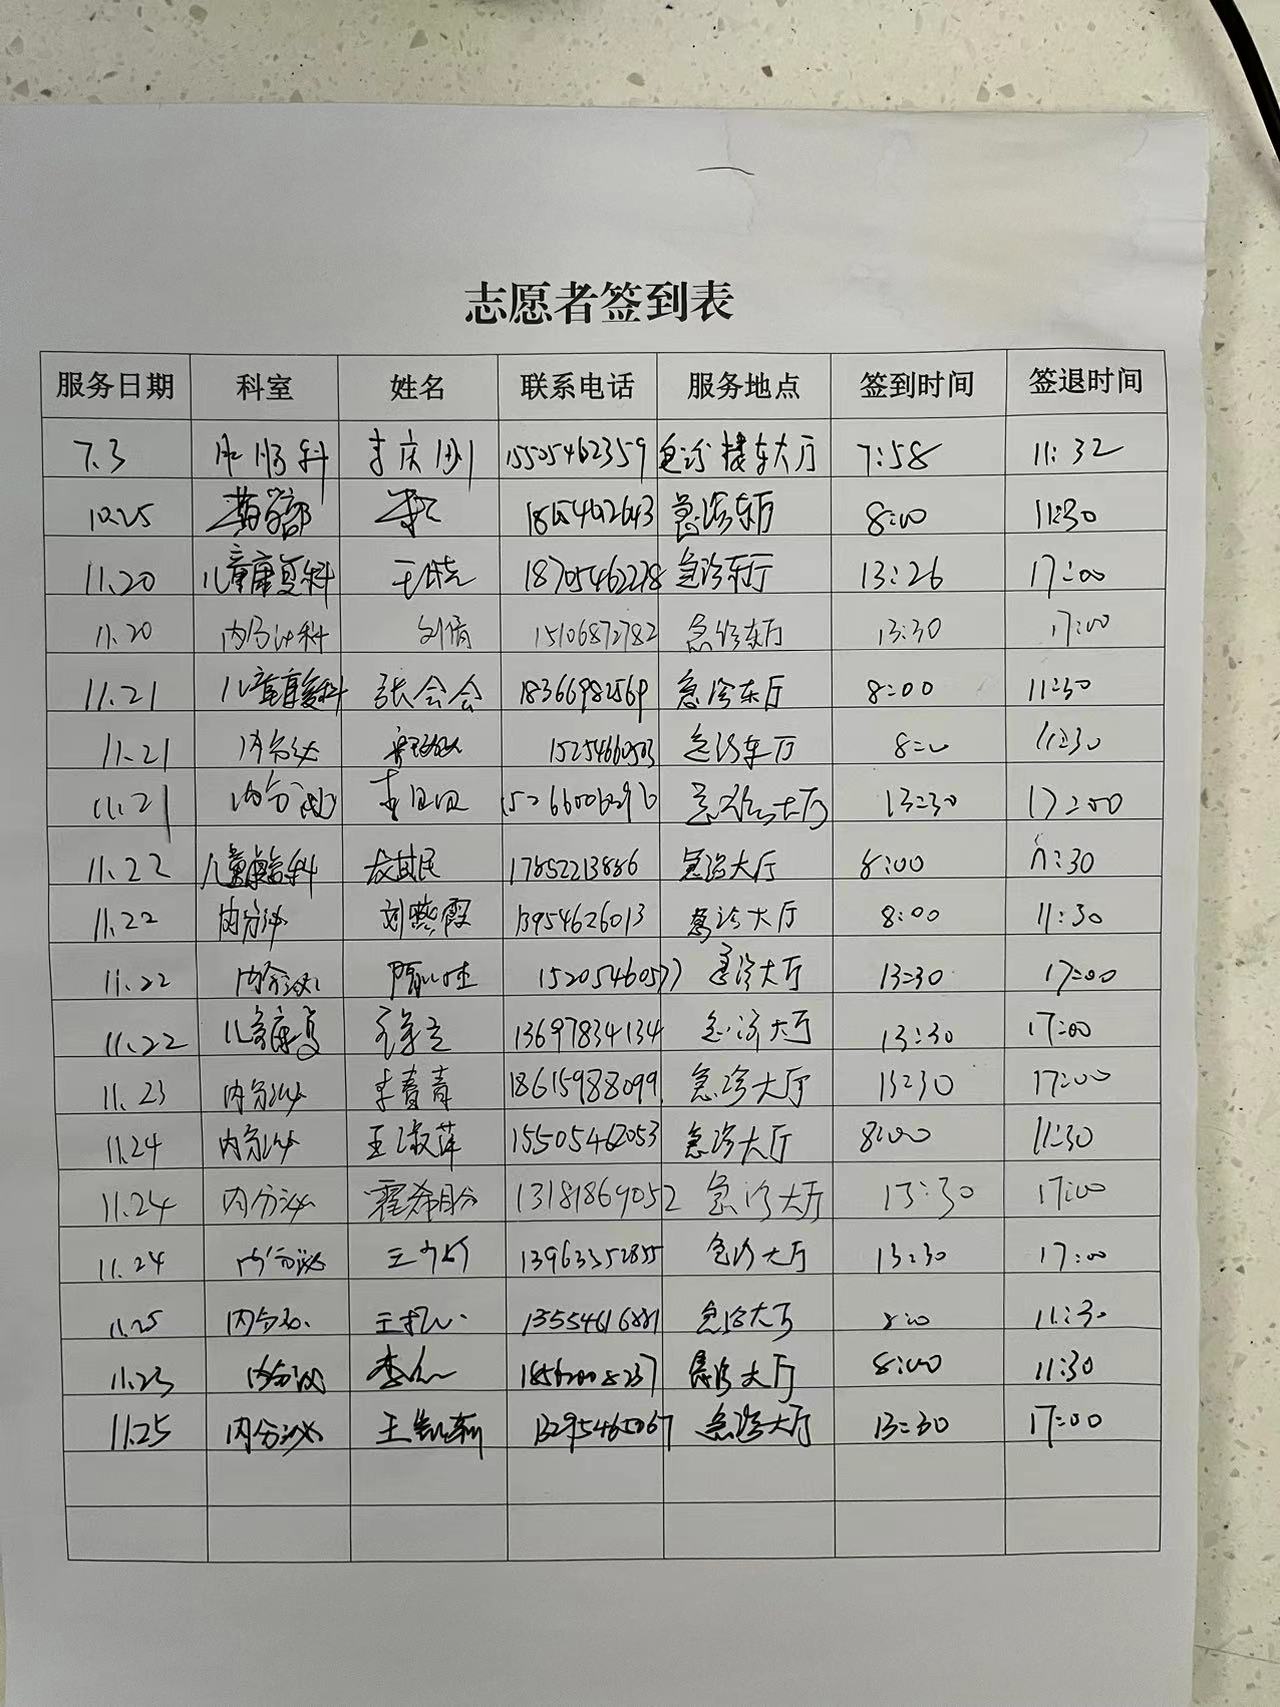 志愿者签到表
服务日期 科室 姓名 联系电话 服务地点 签到时间 签退时间
7.3 15505462359 急诊楼东大厅 7:58 11:32
10.25 药学部 急诊东厅 8:00 11:30
11.20 儿童康复科 王晓 18705462278 急诊东厅 13:26 17:00
11.20 内分泌科 刘倩 15106872782 急诊东厅 13:30 17:00
11.21 儿童康复科 张会会 18366982569 急诊东厅 8:00 11:30
11.21 内分泌 15254660503 急诊东厅 8:00 11:30
11.21 内分泌 急诊大厅 13:30 17:00
11.22 儿童康复科 17852213886 急诊大厅 8:00 11:30
11.22 内分泌 刘燕霞 13954626013 急诊大厅 8:00 11:30
11.22 内分泌 15205460577 急诊大厅 13:30 17:00
11.22 儿童康复 13697834134 急诊大厅 13:30 17:00
11.23 内分泌 李春青 18615988099 急诊大厅 13:30 17:00
11.24 内分泌 王淑萍 15505462053 急诊大厅 8:00 11:30
11.24 内分泌 霍希月 13181869052 急诊大厅 13:30 17:00
11.24 内分泌 13963352855 急诊大厅 13:30 17:00
11.25 内分泌 急诊大厅 8:00 11:30
11.25 内分泌 急诊大厅 8:00 11:30
11.25 内分泌 13295465067 急诊大厅 13:30 17:00